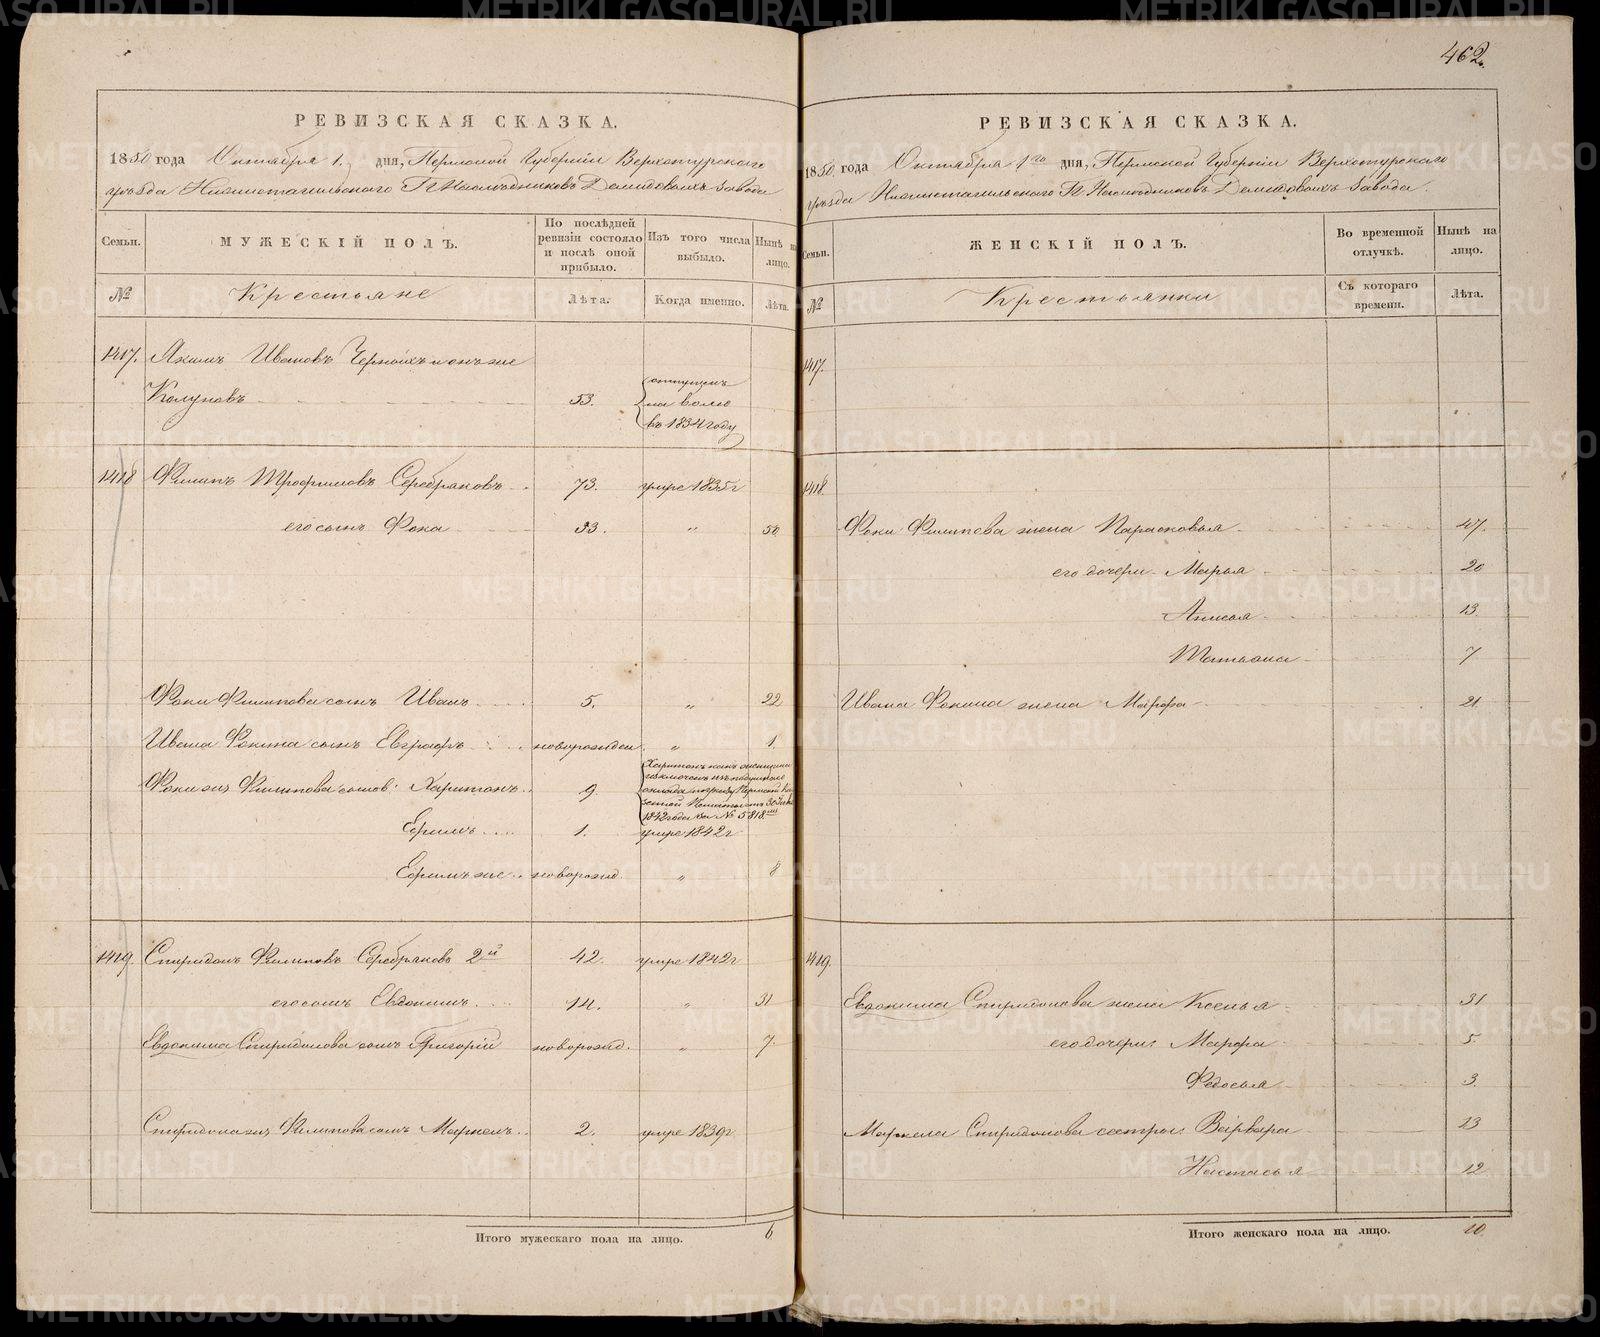 462.
РЕВИЗСКАЯ СКАЗКА.
1850 года Октября 1. дня, Пермской Губернiи Верхотурскаго
уѣзда Нижнетагильскаго Гг. Наслѣдниковъ Демидовыхъ завода
Семьи. МУЖЕСКIЙ ПОЛЪ. По послѣдней ревизiи состояло и послѣ оной прибыло. Изъ того числа выбыло. Нынѣ на лицо.
№ Крестьяне Лѣта. Когда именно. Лѣта.
1417. Якимъ Ивановъ Черныхъ и онъ же
Колуновъ 53. отпущенъ на волю въ 1834 году
1418 Филипъ Трофимовъ Серебряковъ 73. умре 1835 г
его сынъ Фока 33. „ 50
Фоки Филипова сынъ Иванъ 5. „ 22
Ивана Фокина сынъ Евграфъ новорожден „ 1.
Фоки же Филипова сынов: Харитонъ 9
1842 года за № 5818.
Ефимъ 1. умре 1842 г
Ефимъ же новорожд. „ 8
1419. Спиридонъ Филиповъ Серебряковъ 2й 42. умре 1842 г
его сынъ Евдокимъ 14. „ 31
Евдокима Спиридонова сынъ Григорiй новорожд. „ 7.
Спиридона же Филипова сынъ Маркелъ 2. умре 1839 г
Итого мужескаго пола на лицо. 6
РЕВИЗСКАЯ СКАЗКА.
1850 года Октября 1го дня, Пермской Губернiи Верхотурскаго
уѣзда Нижнетагильскаго Гг. Наслѣдниковъ Демидовыхъ завода.
Семьи. ЖЕНСКIЙ ПОЛЪ. Во временной отлучкѣ. Нынѣ на лицо.
№ Крестьянки Съ котораго времени. Лѣта.
1417.
1418.
Фоки Филипова жена Парасковья 47.
его дочери Марья 20
Анисья 13.
Татьяна 7
Ивана Фокина жена Марфа 21
1419.
Евдокима Спиридонова жена Ксенья 31
его дочери: Марфа 5.
Федосья 3.
Маркела Спиридонова сестры: Варвара 13
Настасья 12
Итого женскаго пола на лицо. 10
METRIKI.GASO-URAL.RU